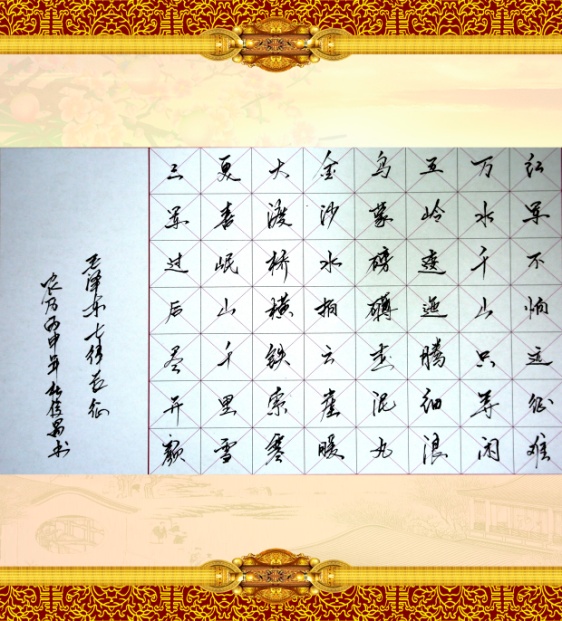 红军不怕远征难
万水千山只等闲
五岭逶迤腾细浪
乌蒙磅礴走泥丸
金沙水拍云崖暖
大渡桥横铁索寒
更喜岷山千里雪
三军过后尽开颜
毛泽东七律长征
农历丙申年书